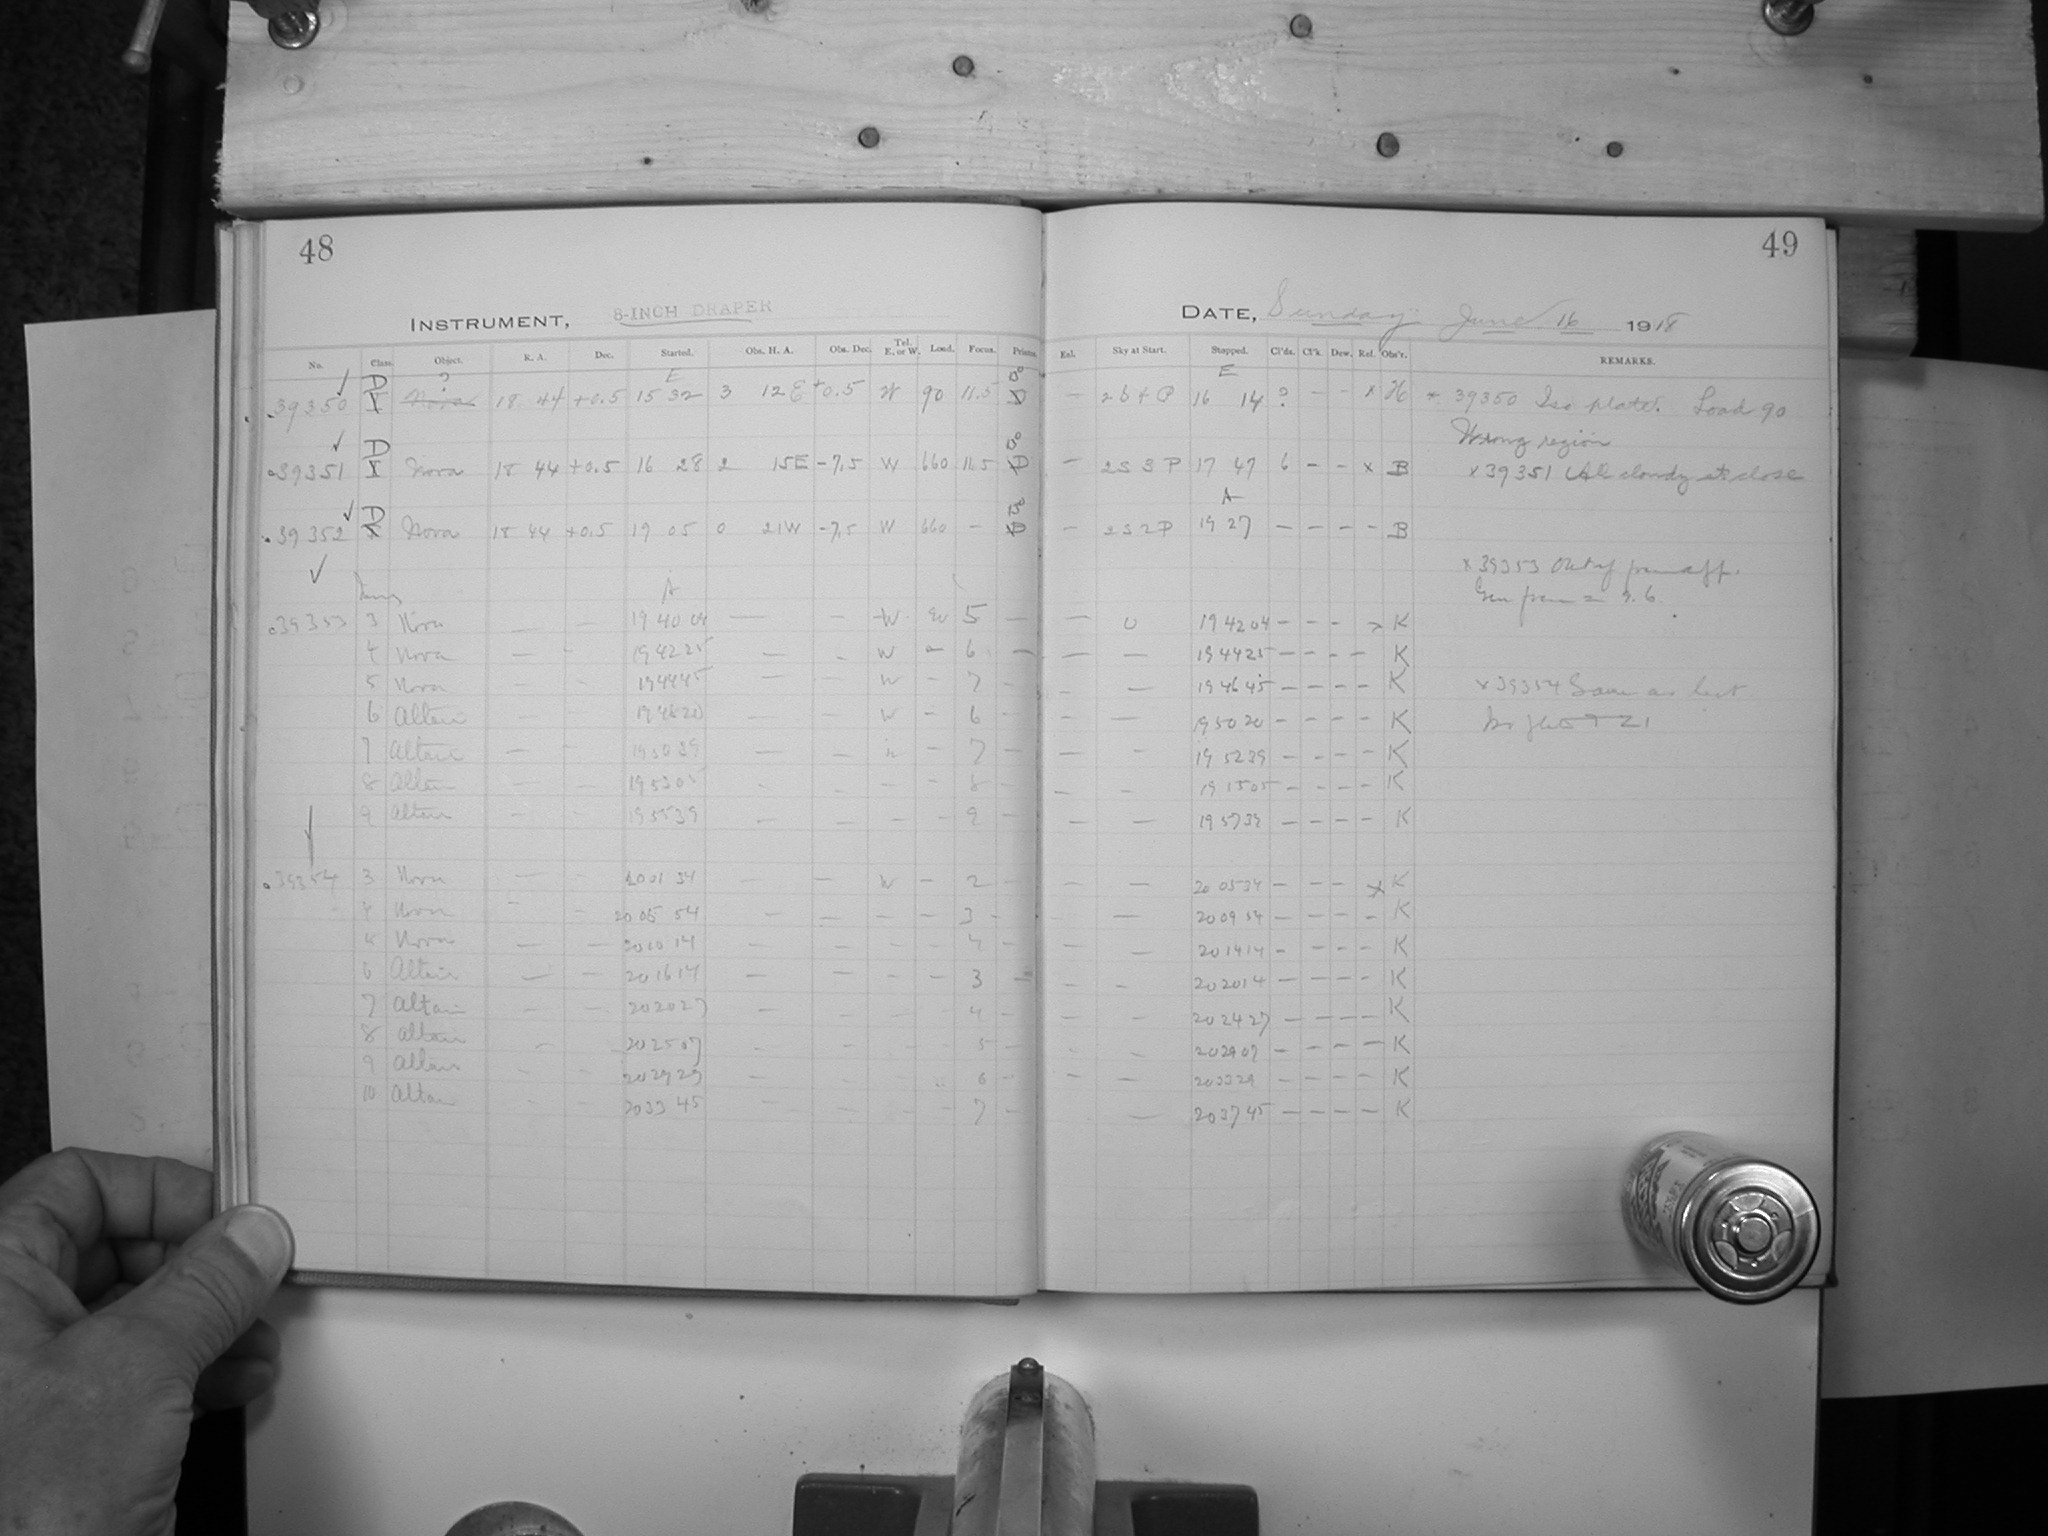 48
49
INSTRUMENT, 8-INCH DRAPER
DATE, Sunday June 16 1918
No. Class. Object. R. A. Dec. Started. Obs. H. A. Obs. Dec. Tel. E. or W. Load. Focus. Prisms. Esl. Sky at Start. Stopped. Cl'ds. Cl'k. Dew. Ref. Obs'r. REMARKS.
D ? E Bo E
39350 I Nova 18 44 +0.5 15 32 3 12 E +0.5 W 90 11.5 D — 2 b 4 P 16 14 ? – – x H x 39350 Iso plate. Load 90
Wrong region
D Bo
39351 I Nova 18 44 +0.5 16 28 2 15E -7.5 W 660 11.5 D — 2S 3 P 17 47 6 – – x B x 39351 All cloudy at close
D Bo A
39352 X Nova 18 44 +0.5 19 05 0 21W -7.5 W 660 – D — 2S 2 P 19 27 – – – – B
x 39353 Out of
A
39353 3 Nova — — 19 40 04 — – W 5 — — 0 19 42 04 – – – x K
4 Nova — – 19 42 25 — – W – 6 — — — 19 44 25 – – – – K
5 Nova — – 19 44 45 — – W – 7 — – — 19 46 45 – – – – K x 39354 Same as last
6 Altair — – 19 48 20 – – W – 6 – – — 19 50 20 – – – – K
7 Altair — – 19 50 39 — – – 7 – – – 19 52 39 – – – – K
8 Altair – – 19 53 05 – – – – 8 – – – 19 55 05 – – – – K
9 Altair – – 19 55 39 – – – – 9 – – — 19 57 39 – – – – K
39354 3 Nova — – 20 01 34 – – W – 2 – – — 20 05 34 – – – x K
4 Nova – – 20 05 54 – – – – 3 – – — 20 09 54 – – – – K
5 Nova — — 20 10 14 – – – – 4 – – — 20 14 14 – – – – K
6 Altair — – 20 16 14 — – – – 3 – – – 20 20 14 – – – – K
7 Altair – – 20 20 27 – – – – 4 – – – 20 24 27 – – – – K
8 Altair – 20 25 07 – – – – 5 – – – 20 29 07 – – – – K
9 Altair – – 20 29 29 – – – 6 – – – 20 33 29 – – – – K
10 Altair – – 20 33 45 – – – – 7 – — 20 37 45 – – – – K